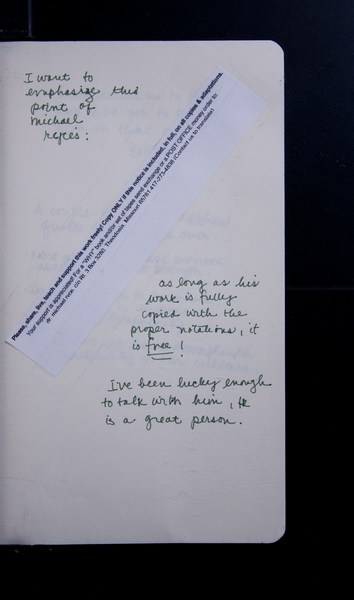 I want to
emphasize this
point of
michael
Please, share, live, teach and support this work freely! Copy ONLY if this notice is included, in full, on all copies & adaptations.
Your support is appreciated! For a "WHY" book and/or set of tapes send exchange or a POST OFFICE money order to:
dr. michael c/o Rt. 3 Box 3280 Theodosia Missouri 65761 417-273-4838 (Contact us to translate)
as long as his
work is fully
copied with the
proper notations, it
is free!
I've been lucky enough
to talk with him, He
is a great person.